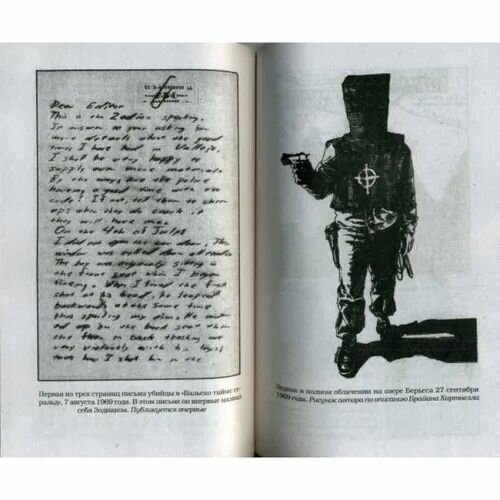 Dear Editor
This is the Zodiac speaking.
In answer to your asking for
more details about the good
times I have had in Vallejo,
I shall be very happy to
supply even more material.
By the way, are the police
having a good time with the
code? If not, tell them to cheer
up; when they do crack it
they will have me.
On the 4th of July
I did not open the car door. The
window was rolled down all ready.
The boy was origionaly sitting in
the front seat when I began
fireing. When I fired the first
shot at his head, he leaped
backwards at the same time
thus spoiling my aim. He end
ed up on the back seat then
the floor in back thashing out
very violently with his legs;
thats how I shot him in the
Первая из трех страниц письма убийцы в «Вальехо таймс ге-
ральд», 7 августа 1969 года. В этом письме он впервые назвал
себя Зодиаком. Публикуется впервые
Зодиак в полном облачении на озере Берьеса 27 сентября
1969 года. Рисунок автора по описанию Брайана Хартнелла